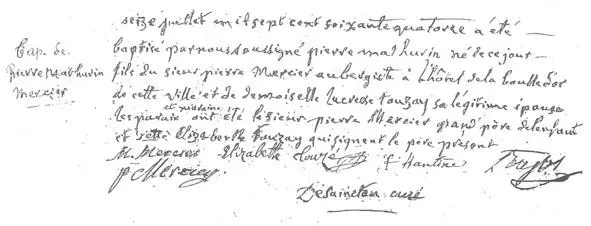 Bap. de
Pierre Mathurin
Mercier
seize juillet mil sept cent soixante quatorze a été
baptisé par nous soussigné pierre mathurin né de ce jour
fils du sieur pierre Mercier aubergiste à l'hôtel de la boulle d'or
de cette ville et de demoiselle Lucresse touzay sa légitime épouse
et maraine
les parain ont été le sieur pierre Mercier grand père de lenfant
et Elizabette touzay qui signent le père présent
M. Mercier Elizabette f Hantine
p Mercier
Désaincton curé